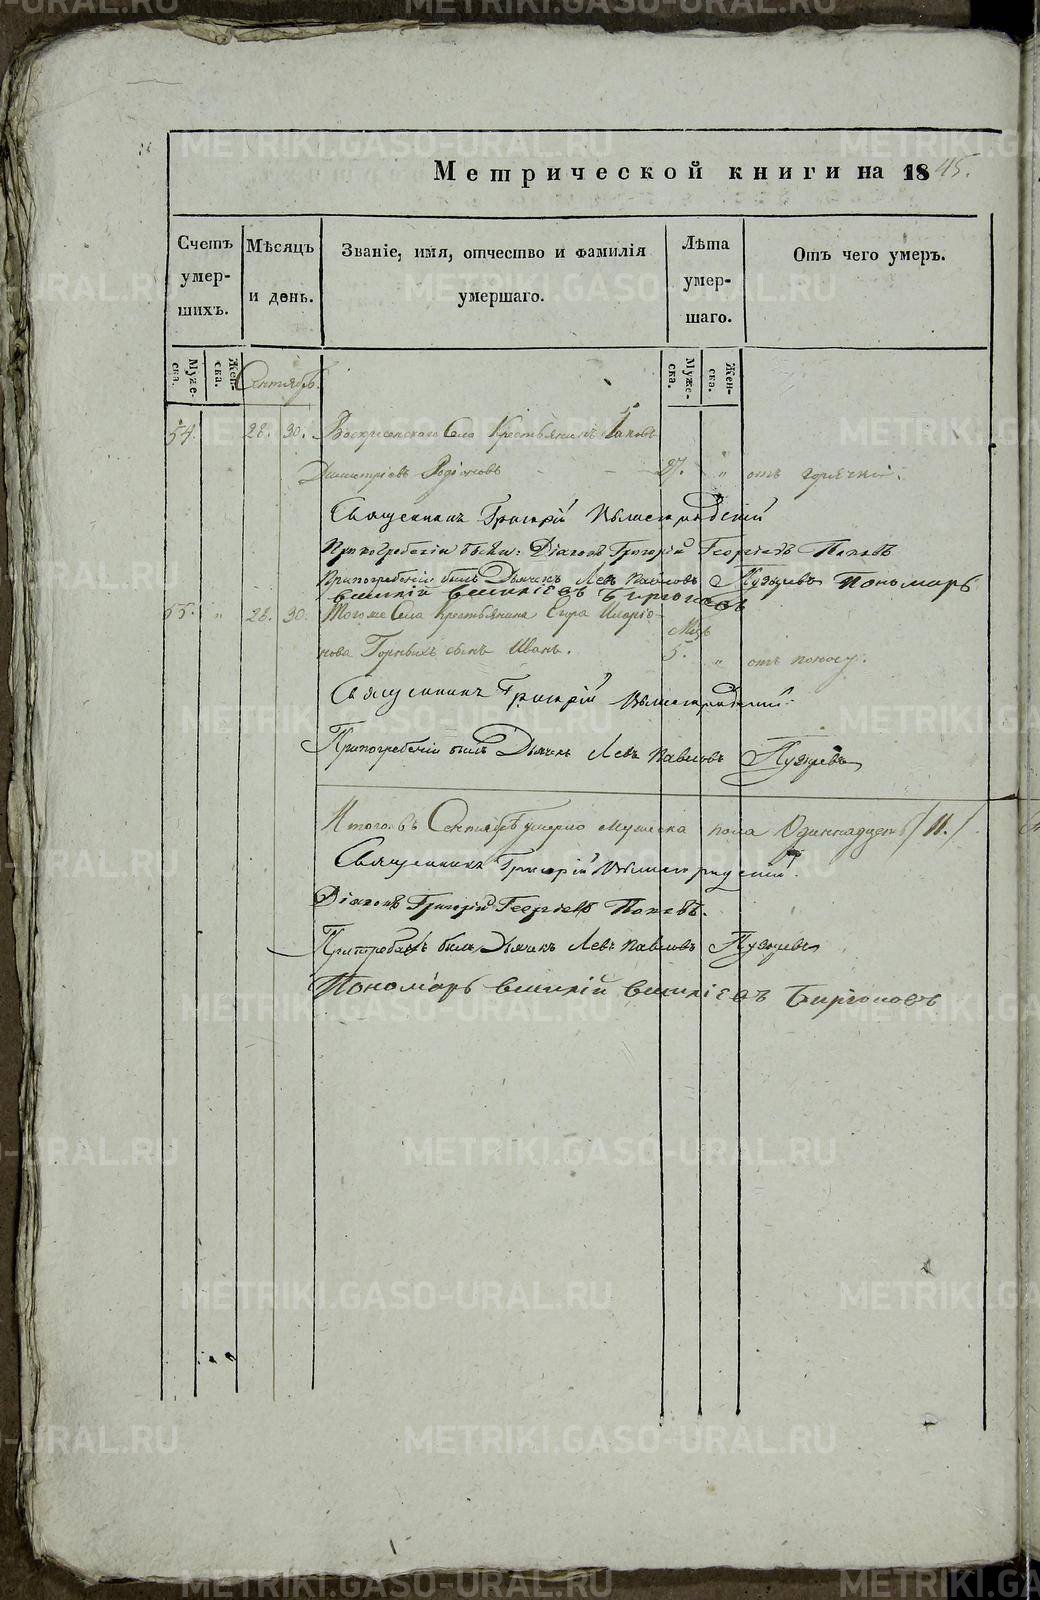 Метрической книги на 1845.
Счетъ умер-шихъ.
Мѣсяцъ и день.
Званіе, имя, отчество и фамилія умершаго.
Лѣта умер-шаго.
Отъ чего умеръ.
Муже-ска.
Жен-ска.
Сентябрь.
Муже-ска.
Жен-ска.
54. 28. 30. Воскресенскаго Села Крестьянинъ Іаковъ
Димитріевъ Родіоновъ 27. " отъ горячки.
Священникъ Григорій
При погребеніи были: Діаконъ Григорій Георгіевъ Поповъ
При погребеніи былъ Дьячекъ Левъ Павловъ Пузыревъ Пономарь
55. " 28. 30. Тогоже Села Крестьянина Егора Иларіо-
нова Горныхъ сынъ Иванъ. Мѣс. 5. " отъ поносу.
Священникъ Григорій
При погребеніи былъ Дьячекъ Левъ Павловъ Пузыревъ
Итого въ Сентябрѣ умерло мужеска пола Одиннадцать /11./
Священникъ Григорій
Діаконъ Григорій Георгіевъ Поповъ.
былъ Дьячекъ Левъ Павловъ Пузыревъ
Пономарь
METRIKI.GASO-URAL.RU